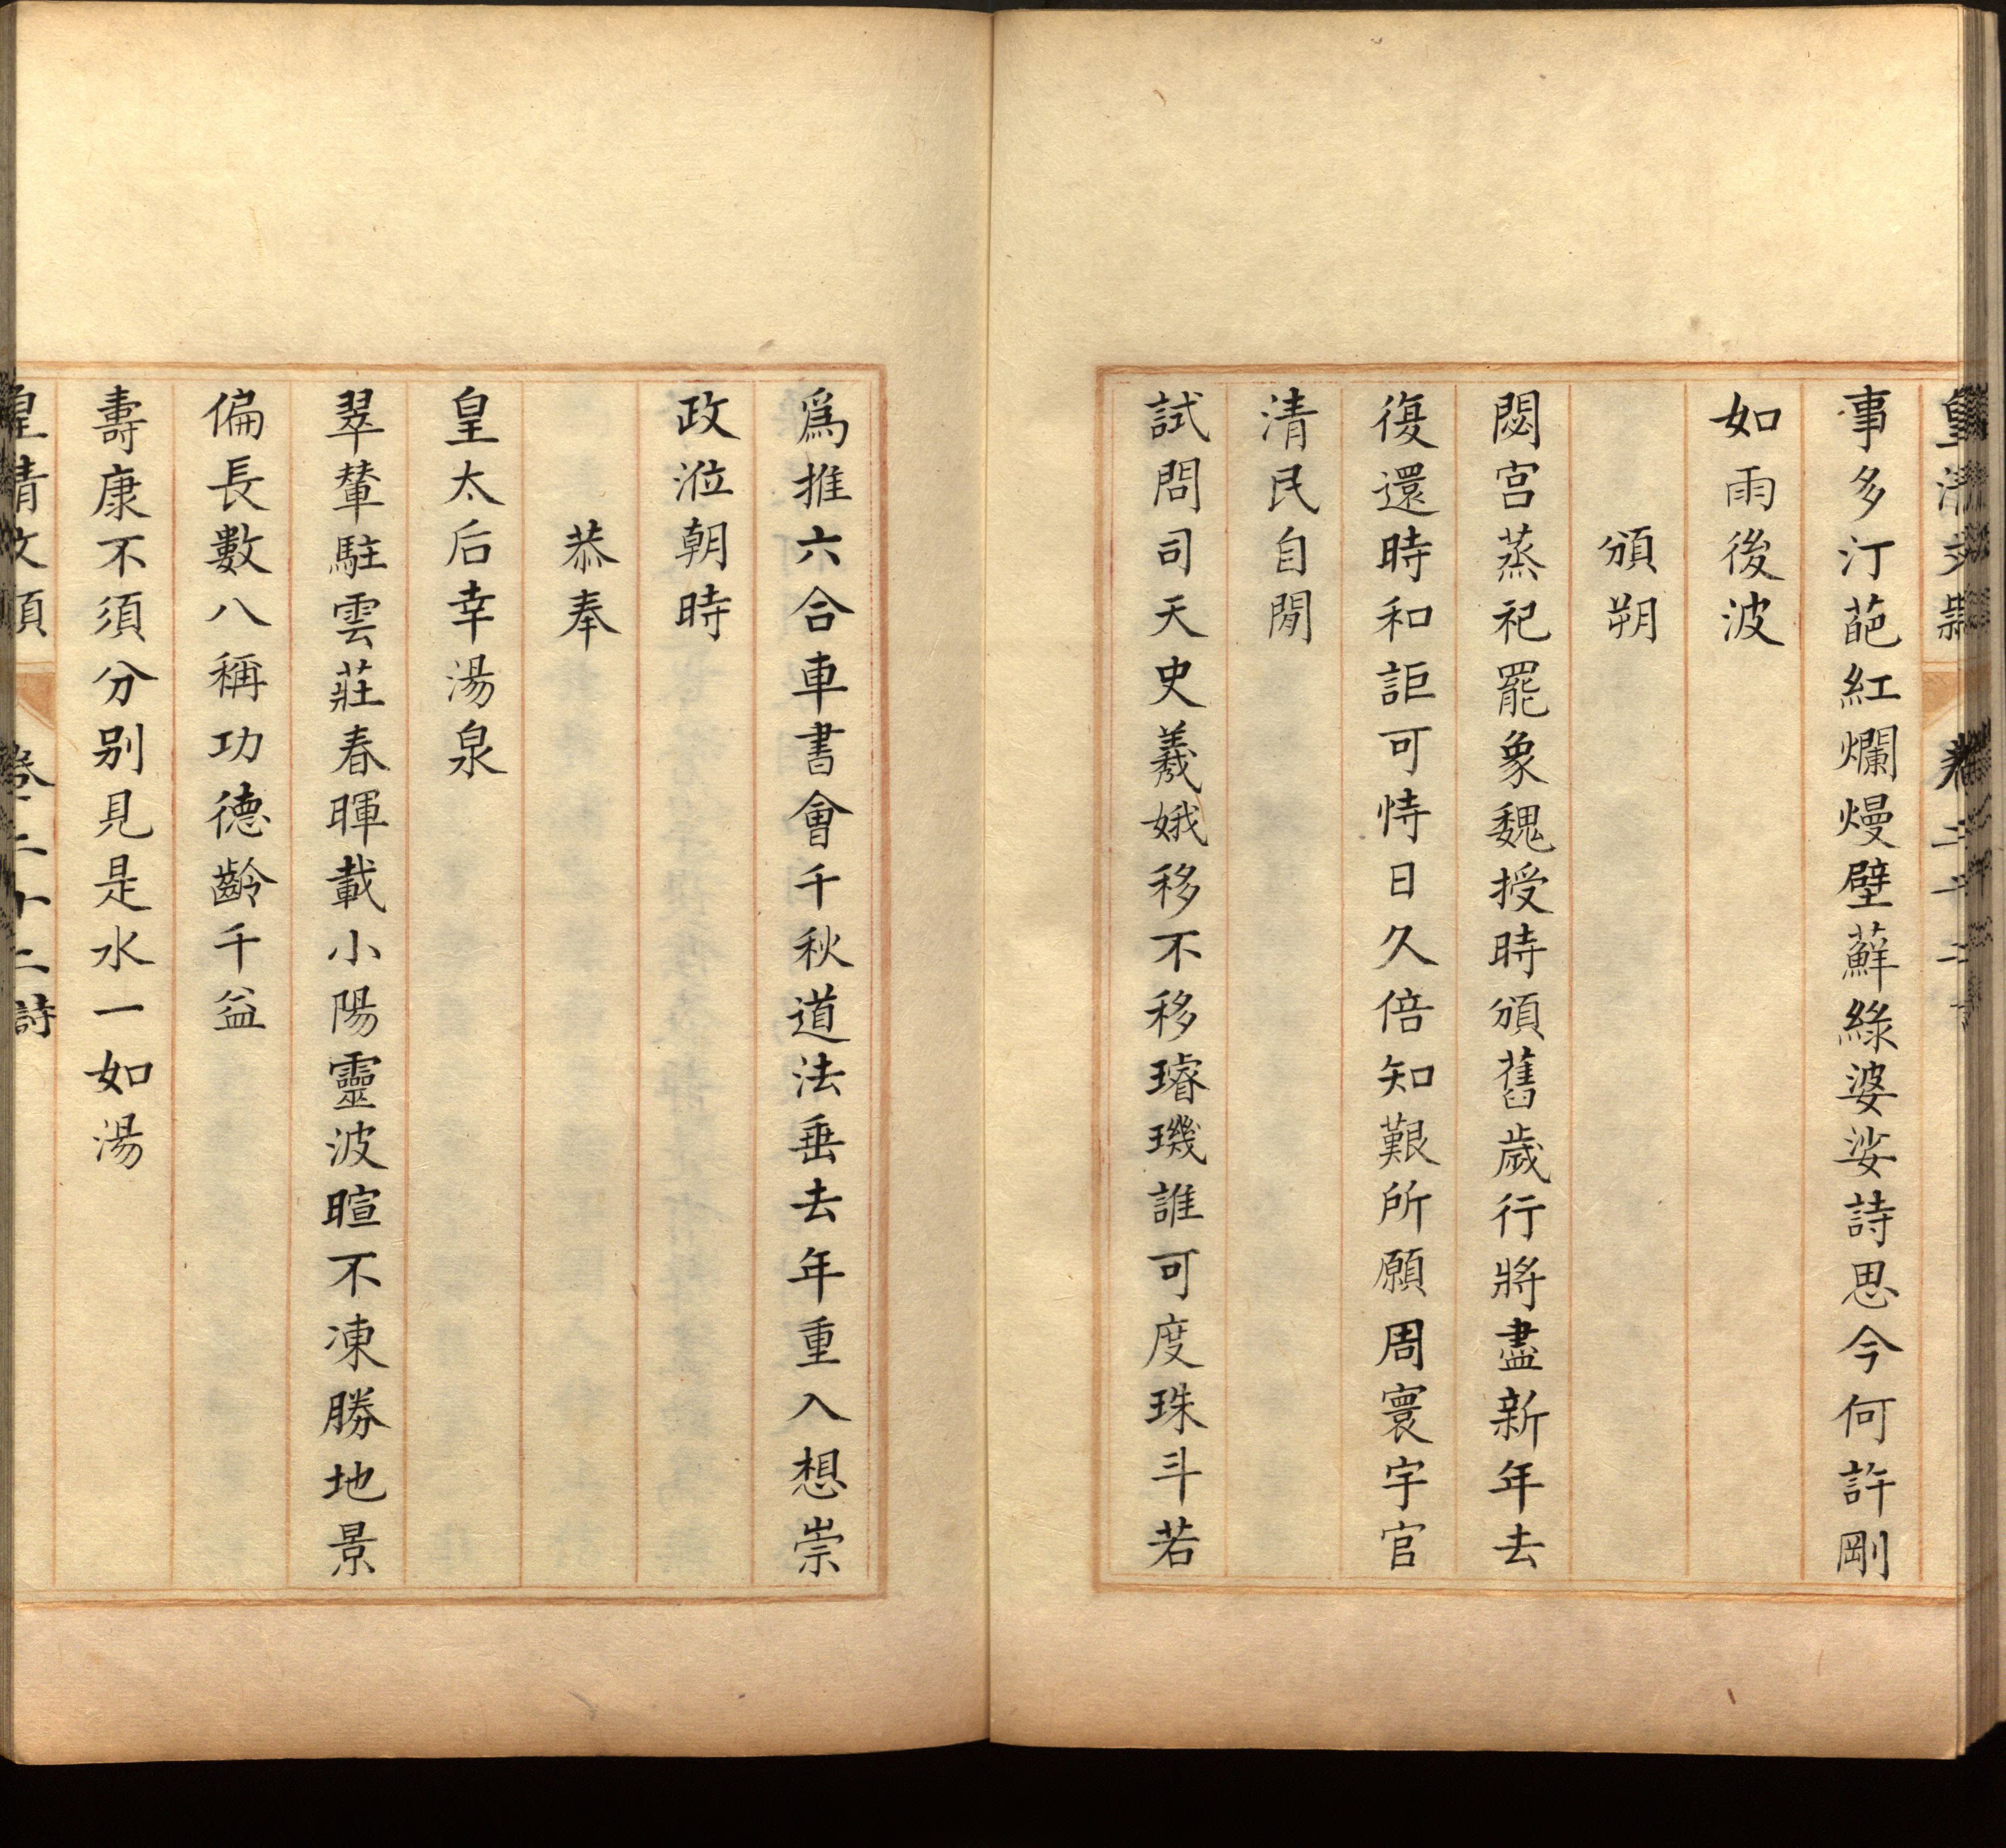 事多汀葩紅爛熳壁蘚綠婆娑詩思今何許剛
如雨後波
頒朔
閟宮蒸祀罷象魏授時頒舊歲行將盡新年去
復還時和詎可恃日久倍知艱所願周寰宇官
清民自閒
試問司天史羲娥移不移璿璣誰可度珠斗若
爲推六合車書會千秋道法垂去年重入想崇
政涖朝時
恭奉
皇太后幸湯泉
翠輦駐雲莊春暉載小陽靈波暄不凍勝地景
偏長數八稱功德齡千益
壽康不須分別見是水一如湯
皇清文穎 卷二十二 詩